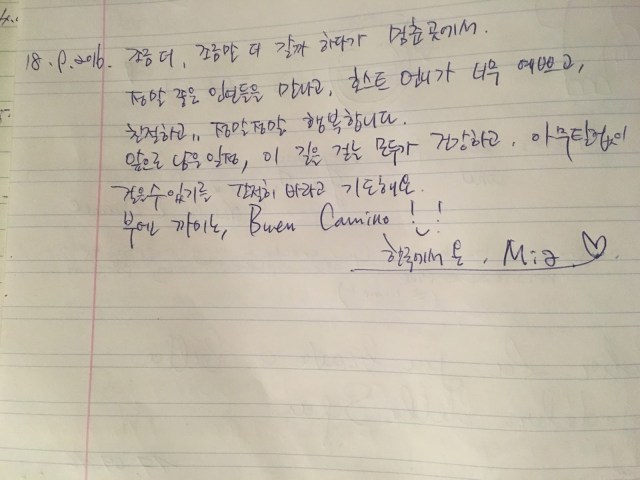 18. 9. 2016. 조금 더, 조금만 더 갈까 하다가 멈춘 곳에서.
정말 좋은 인연들을 만나고, 호스트 언니가 너무 예쁘고,
친절하고,, 정말정말 행복합니다.
앞으로 남은 일정, 이 길을 걷는 모두가 건강하고, 아무탈없이
걸을수 있기를 간절히 바라고 기도해요.
부엔 까미노, Buen Camino ! !
한국에서 온, Mia ♡.